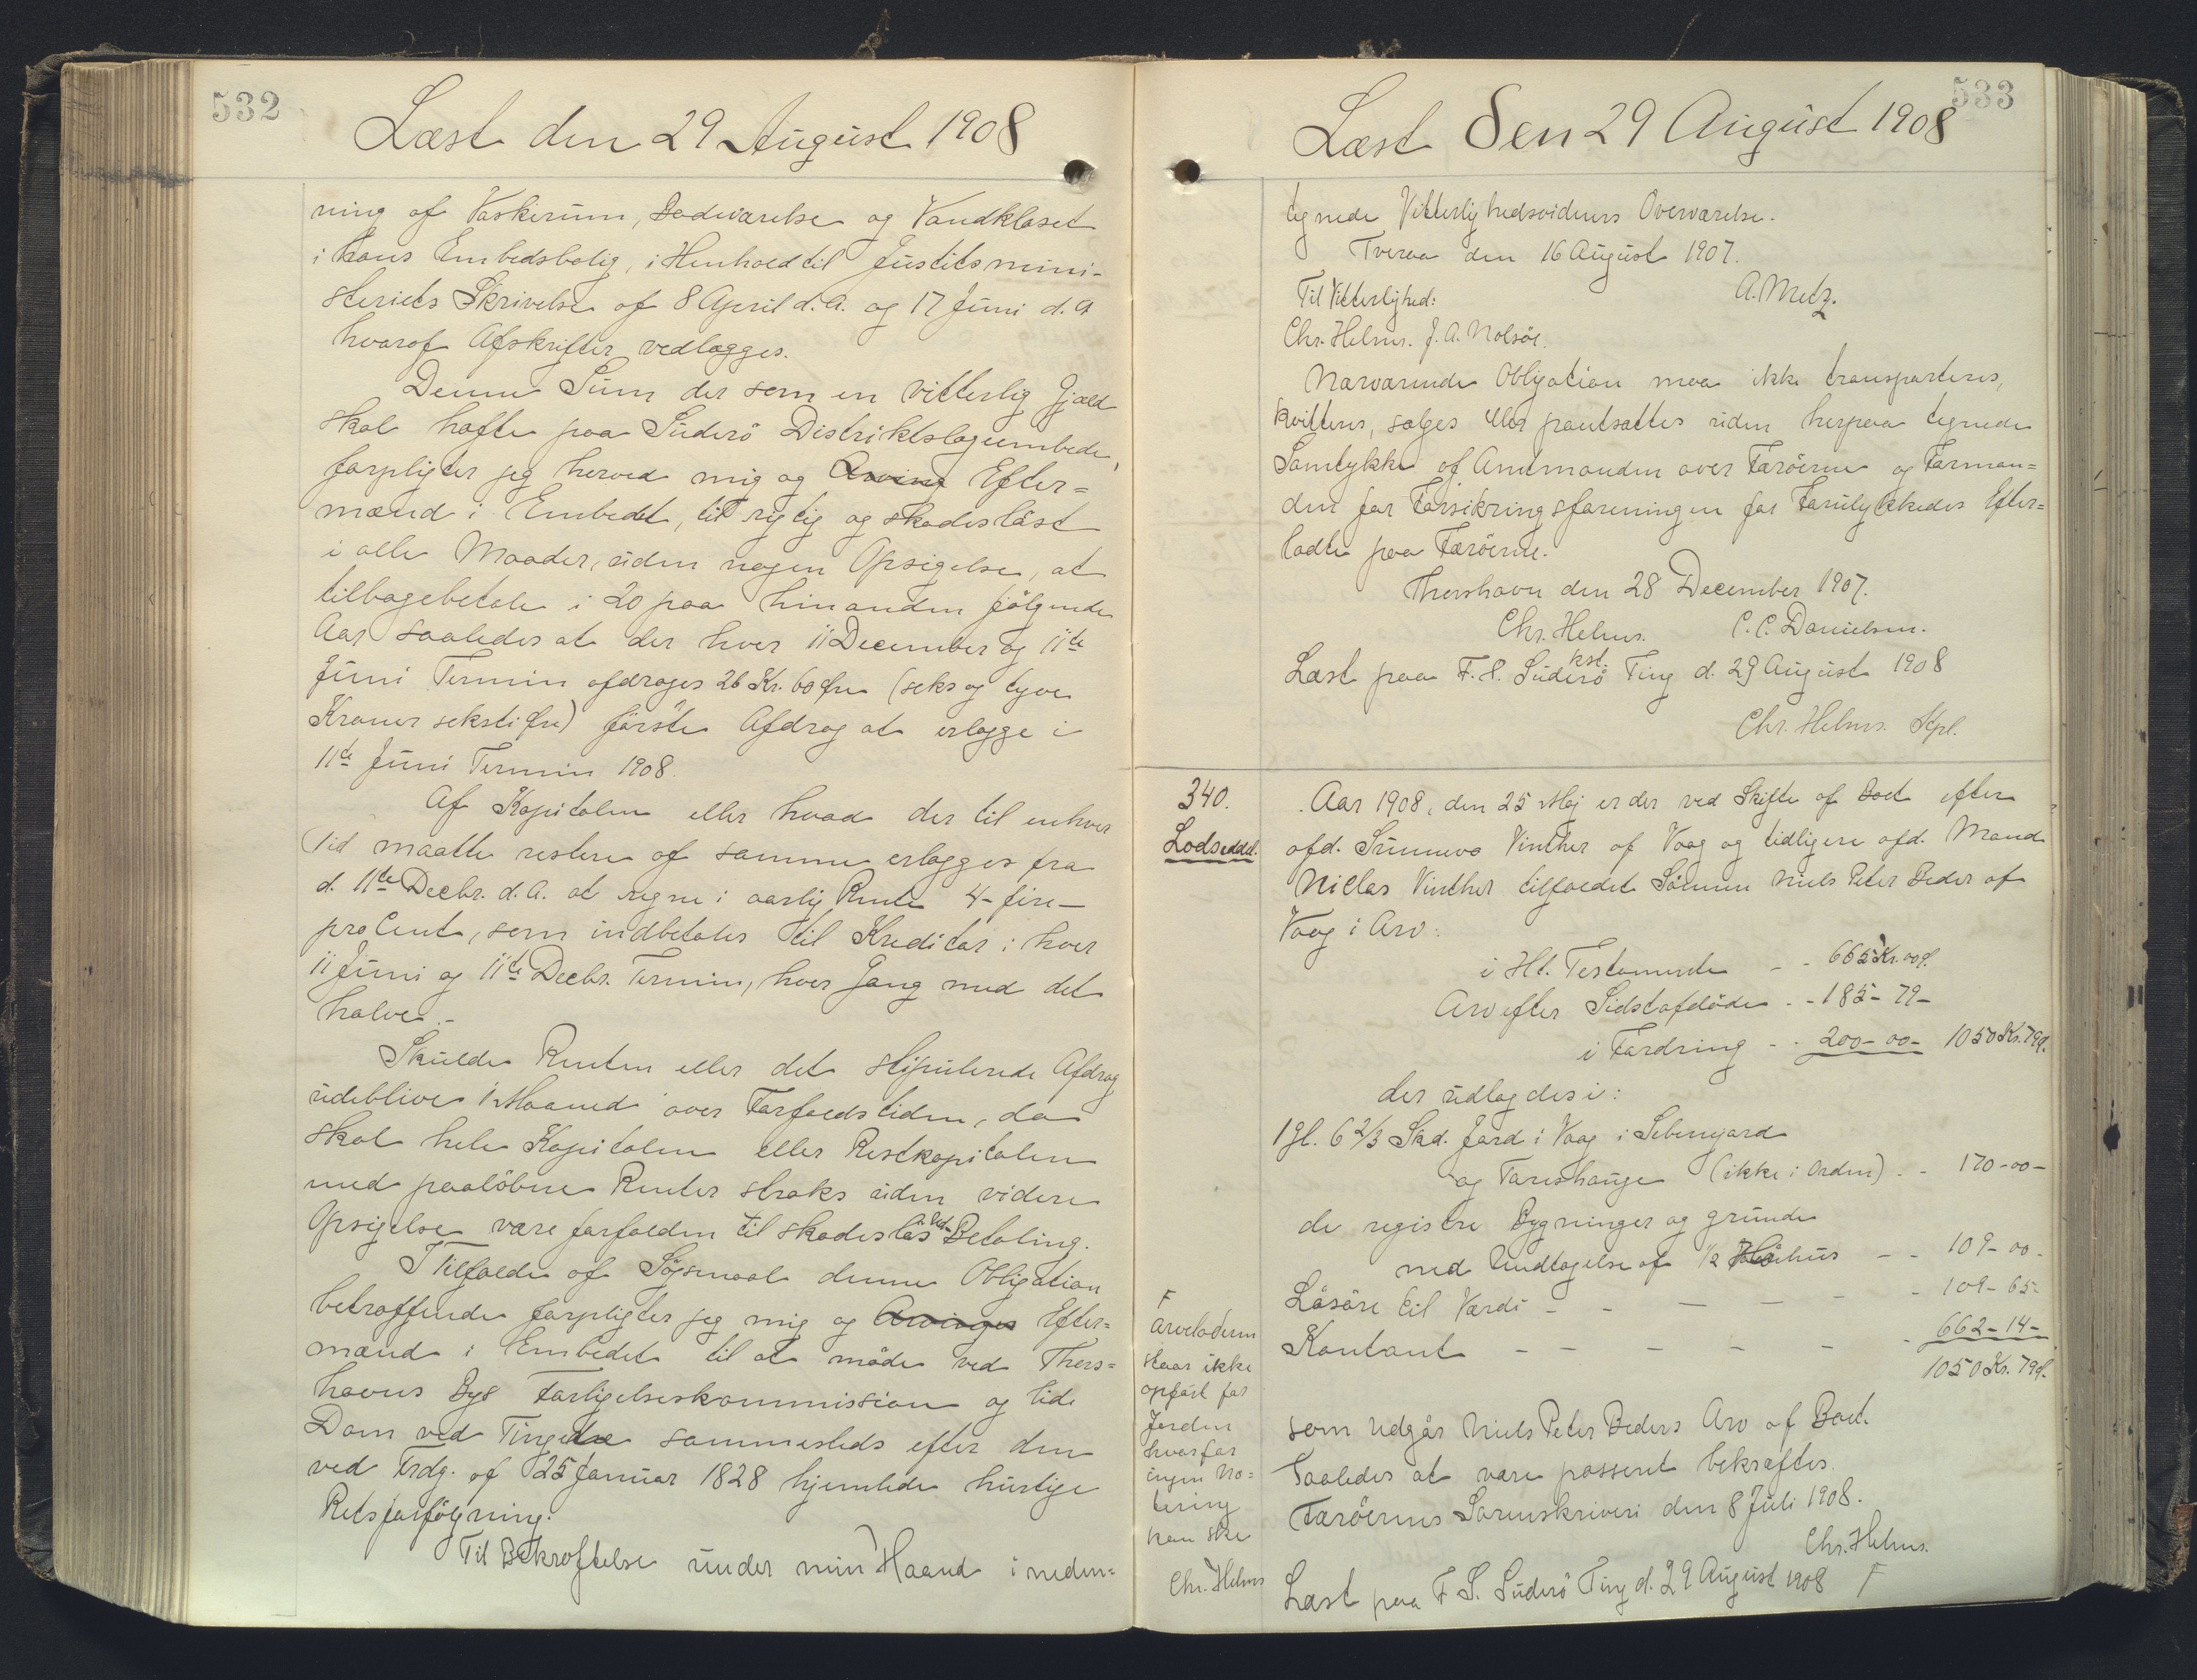 532
Læst den 29 August 1908
ning af Vaskerum, Badeværelse og Vandkloset
i hans Embedsbolig, i Henhold til Justitsmini-
steriets Skrivelse af 8 April d. A. og 17 Juni d. A
hvoraf Afskrifter vedlægges.
Denne Sum der som en vitterlig Gjæld
skal hæfte paa Suderö Distriktslægeembede,
forpligter jeg herved mig og Arving Efter=
mænd i Embedet, til rigtig og skadeslöst
i alle Maader, uden nogen Opsigelse, at
tilbagebetale i 20 paa hinanden følgende
Aar saaledes at der hver 11 December og 11te
Juni Termin afdrages 26 Kr. 60 Øre (seks og tyve
Kroner seksti Øre) förste Afdrag at erlægge i
11te Juni Termin 1908.
Af Kapitalen eller hvad der til enhver
Tid maatte restere af samme erlægges fra
d. 11te Decbr. d. A. at regne i aarlig Rente 4 - fire -
pro Cent, som indbetales til Kreditor i hver
11 Juni og 11te Decbr. Termin, hver Gang med det
halve.-
Skulde Renten eller det stipulerede Afdrag
udeblive 1 Maaned over Forfaldstiden, da
skal hele Kapitalen eller Restkapitalen
med paalöbne Renter straks uden videre
Opsigelse være forfalden til skadeslös Betaling.
I Tilfælde af Sögsmaal denne Obligation
betræffende forpligter jeg mig og Arvinger Efter=
mænd i Embedet til at möde ved Thors=
havns Bys Forligelseskommission og lide
Dom ved Tingene sammesteds efter den
ved Frdg. af 25 Januar 1828 hjemlede hurtige
Retsforfölgning.
Til Bekræftelse under min Haand i neden=
533
Læst den 29 August 1908
tegnede Vitterlighedsvidners Overværelse.
Tveraa den 16 August 1907.
A. Metz.
Til Vitterlighed:
Chr. Helms. J. A. Nolsöe.
Nærværende Obligation maa ikke transporteres,
kvitteres, sælges eller pantsættes uden herpaa tegnede
Samtykke af Amtmanden over Færöerne og Forman=
den for Forsikringsforeningen for Forulykkedes Efter=
ladte paa Færöerne.
Thorshavn den 28 December 1907.
Chr. Helms. C. C. Danielsen.
Læst paa F. S. Suderö kst. Ting d. 29 August 1908
Chr. Helms. Kpl.
340.
Lodseddel.
Aar 1908, den 25 Maj er der ved Skifte af Boet efter
afd. Sunneva Vinther af Vaag og tidligere afd. Mand
Niclas Vinther tilfaldet Sönnen Niels Peter Peder af
Vaag i Arv:
i Hl. Testamente - - 665 Kr. 00 Ø.
Arv efter Sidstafdöde - - 185 - 79 -
i Fordring - - 200 - 00 - 1050 Kr. 79 Ø.
der udlagdes i:
1 gl. 6 2/3 Skd. Jord i Vaag i
og (ikke i Orden) - - 170 - 00 -
de registre Bygninger og grunde
med Undtagelse af 1/2 - - 109 - 00 -
Lösöre til Værdi - - - - - - 109 - 65 -
Kontant - - - - - - 662 - 14 -
1050 Kr. 79 Ø.
som udgår Niels Peter Peders Arv af Boet.
Saaledes at være passeret bekræftes.
Færöernes Sorenskriveri den 8 Juli 1908.
Chr. Helms.
Læst paa F. S. Suderö Ting d. 29 August 1908 F
F
Arveladeren
staar ikke
opfört for
Jorden
hvorfor
ingen No=
tering
kan ske
Chr. Helms